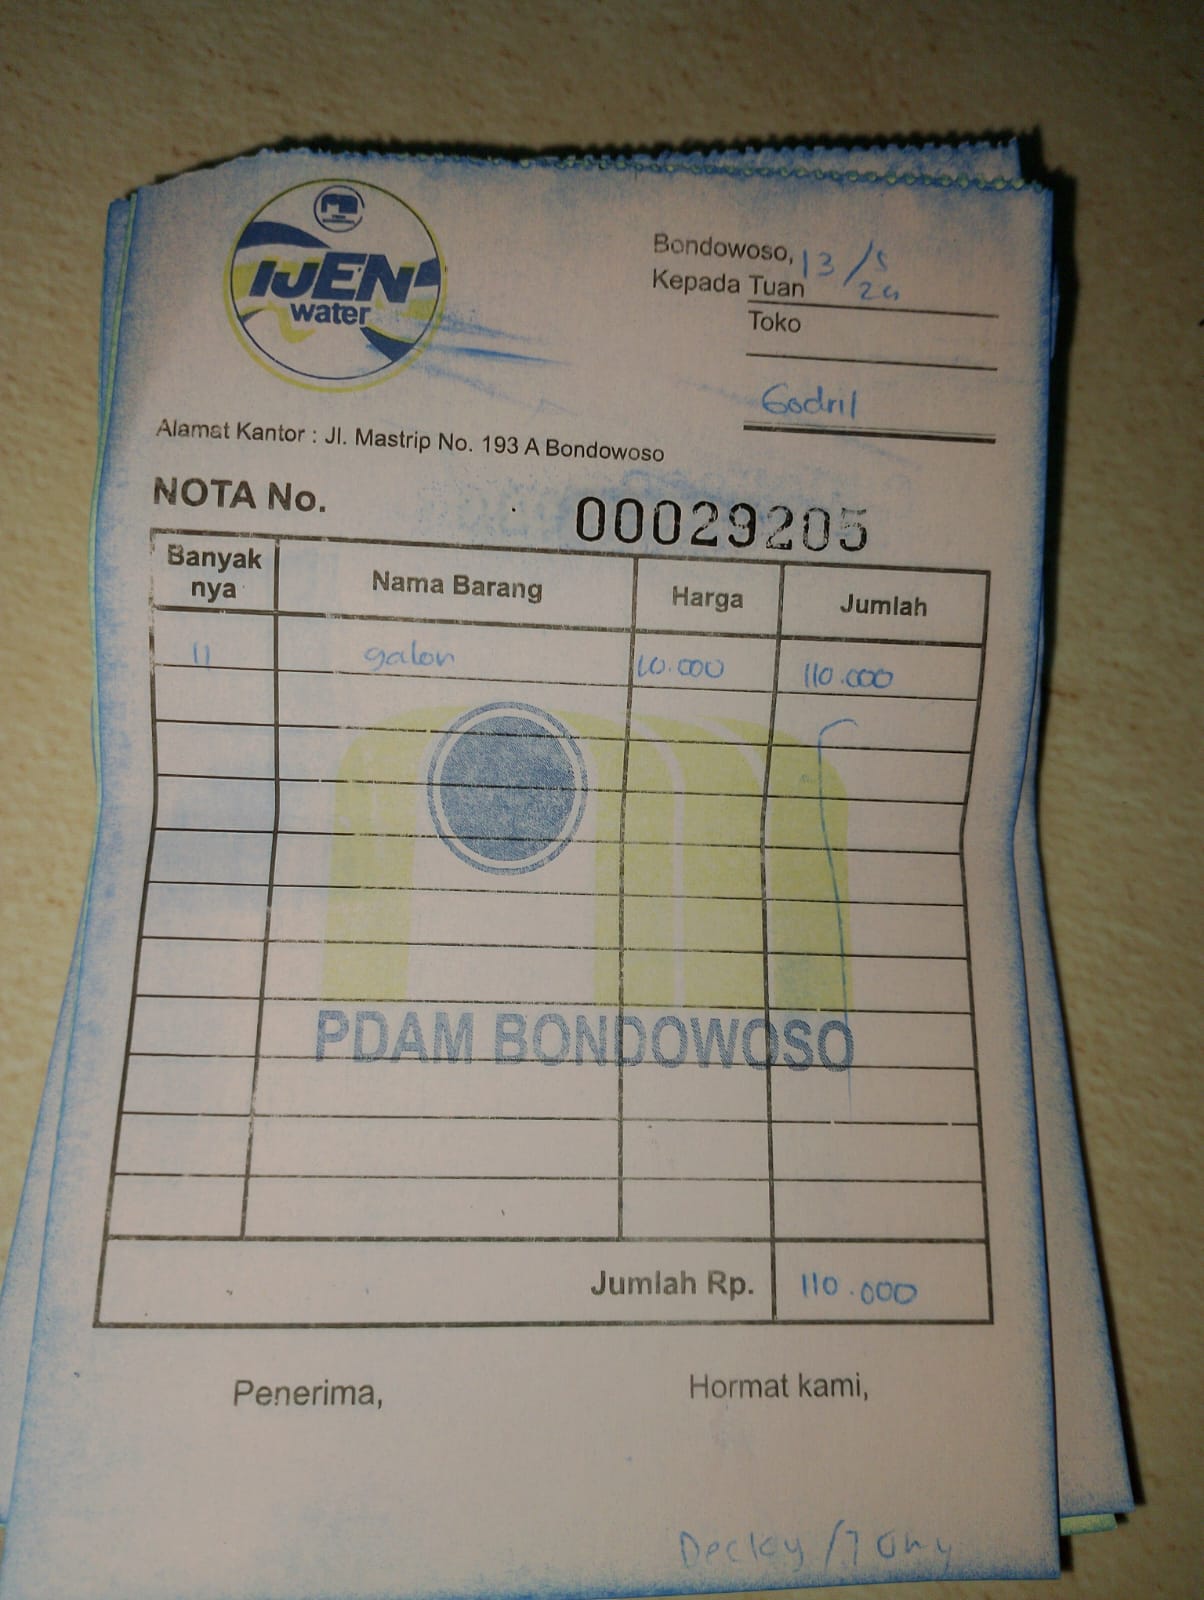 IJEN
water
Bondowoso, 13/5
24
Kepada Tuan
Toko
Godril
Alamat Kantor : Jl. Mastrip No. 193 A Bondowoso
NOTA No. 00029205
Banyak nya Nama Barang Harga Jumlah
11 galon 10.000 110.000
PDAM BONDOWOSO
Jumlah Rp. 110.000
Penerima, Hormat kami,
Decky / Tony